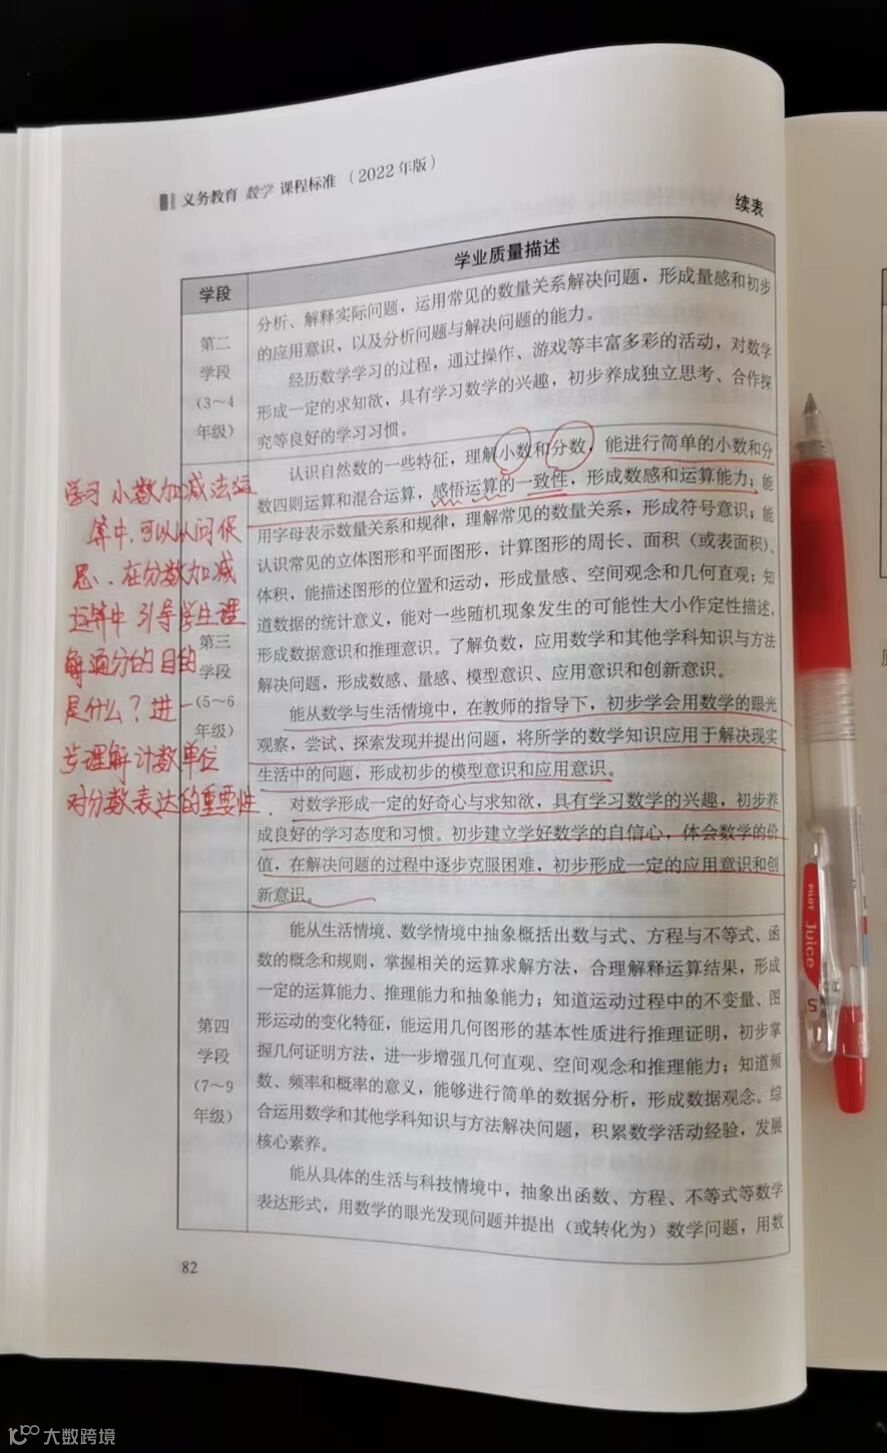 义务教育 数学 课程标准（2022年版）
续表
学段
学业质量描述
第二
学段
（3～4
年级）
分析、解释实际问题，运用常见的数量关系解决问题，形成量感和初步
的应用意识，以及分析问题与解决问题的能力。
经历数学学习的过程，通过操作、游戏等丰富多彩的活动，对数学
形成一定的求知欲，具有学习数学的兴趣，初步养成独立思考、合作探
究等良好的学习习惯。
学习小数加减法运
算中，可以从问
思、在分数加减
运算中引导学生理
解通分的目的
是什么？进一
步理解计数单位
对分数表达的重要性.
第三
学段
（5～6
年级）
认识自然数的一些特征，理解小数和分数，能进行简单的小数和分
数四则运算和混合运算，感悟运算的一致性，形成数感和运算能力；能
用字母表示数量关系和规律，理解常见的数量关系，形成符号意识；能
认识常见的立体图形和平面图形，计算图形的周长、面积（或表面积）、
体积，能描述图形的位置和运动，形成量感、空间观念和几何直观；知
道数据的统计意义，能对一些随机现象发生的可能性大小作定性描述，
形成数据意识和推理意识。了解负数，应用数学和其他学科知识与方法
解决问题，形成数感、量感、模型意识、应用意识和创新意识。
能从数学与生活情境中，在教师的指导下，初步学会用数学的眼光
观察，尝试、探索发现并提出问题，将所学的数学知识应用于解决现实
生活中的问题，形成初步的模型意识和应用意识。
对数学形成一定的好奇心与求知欲，具有学习数学的兴趣，初步养
成良好的学习态度和习惯。初步建立学好数学的自信心，体会数学的价
值，在解决问题的过程中逐步克服困难，初步形成一定的应用意识和创
新意识。
第四
学段
（7～9
年级）
能从生活情境、数学情境中抽象概括出数与式、方程与不等式、函
数的概念和规则，掌握相关的运算求解方法，合理解释运算结果，形成
一定的运算能力、推理能力和抽象能力；知道运动过程中的不变量、图
形运动的变化特征，能运用几何图形的基本性质进行推理证明，初步掌
握几何证明方法，进一步增强几何直观、空间观念和推理能力；知道频
数、频率和概率的意义，能够进行简单的数据分析，形成数据观念。综
合运用数学和其他学科知识与方法解决问题，积累数学活动经验，发展
核心素养。
能从具体的生活与科技情境中，抽象出函数、方程、不等式等数学
表达形式，用数学的眼光发现问题并提出（或转化为）数学问题，用数
82
PILOT
Juice
5
大数跨境